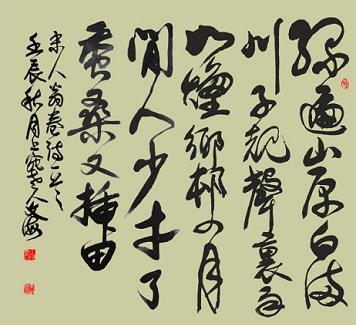 绿遍山原白满
川子规聲裏雨
如煙鄉邨四月
閒人少才了
蚕桑又插田
宋人翁卷诗一首
壬辰秋月